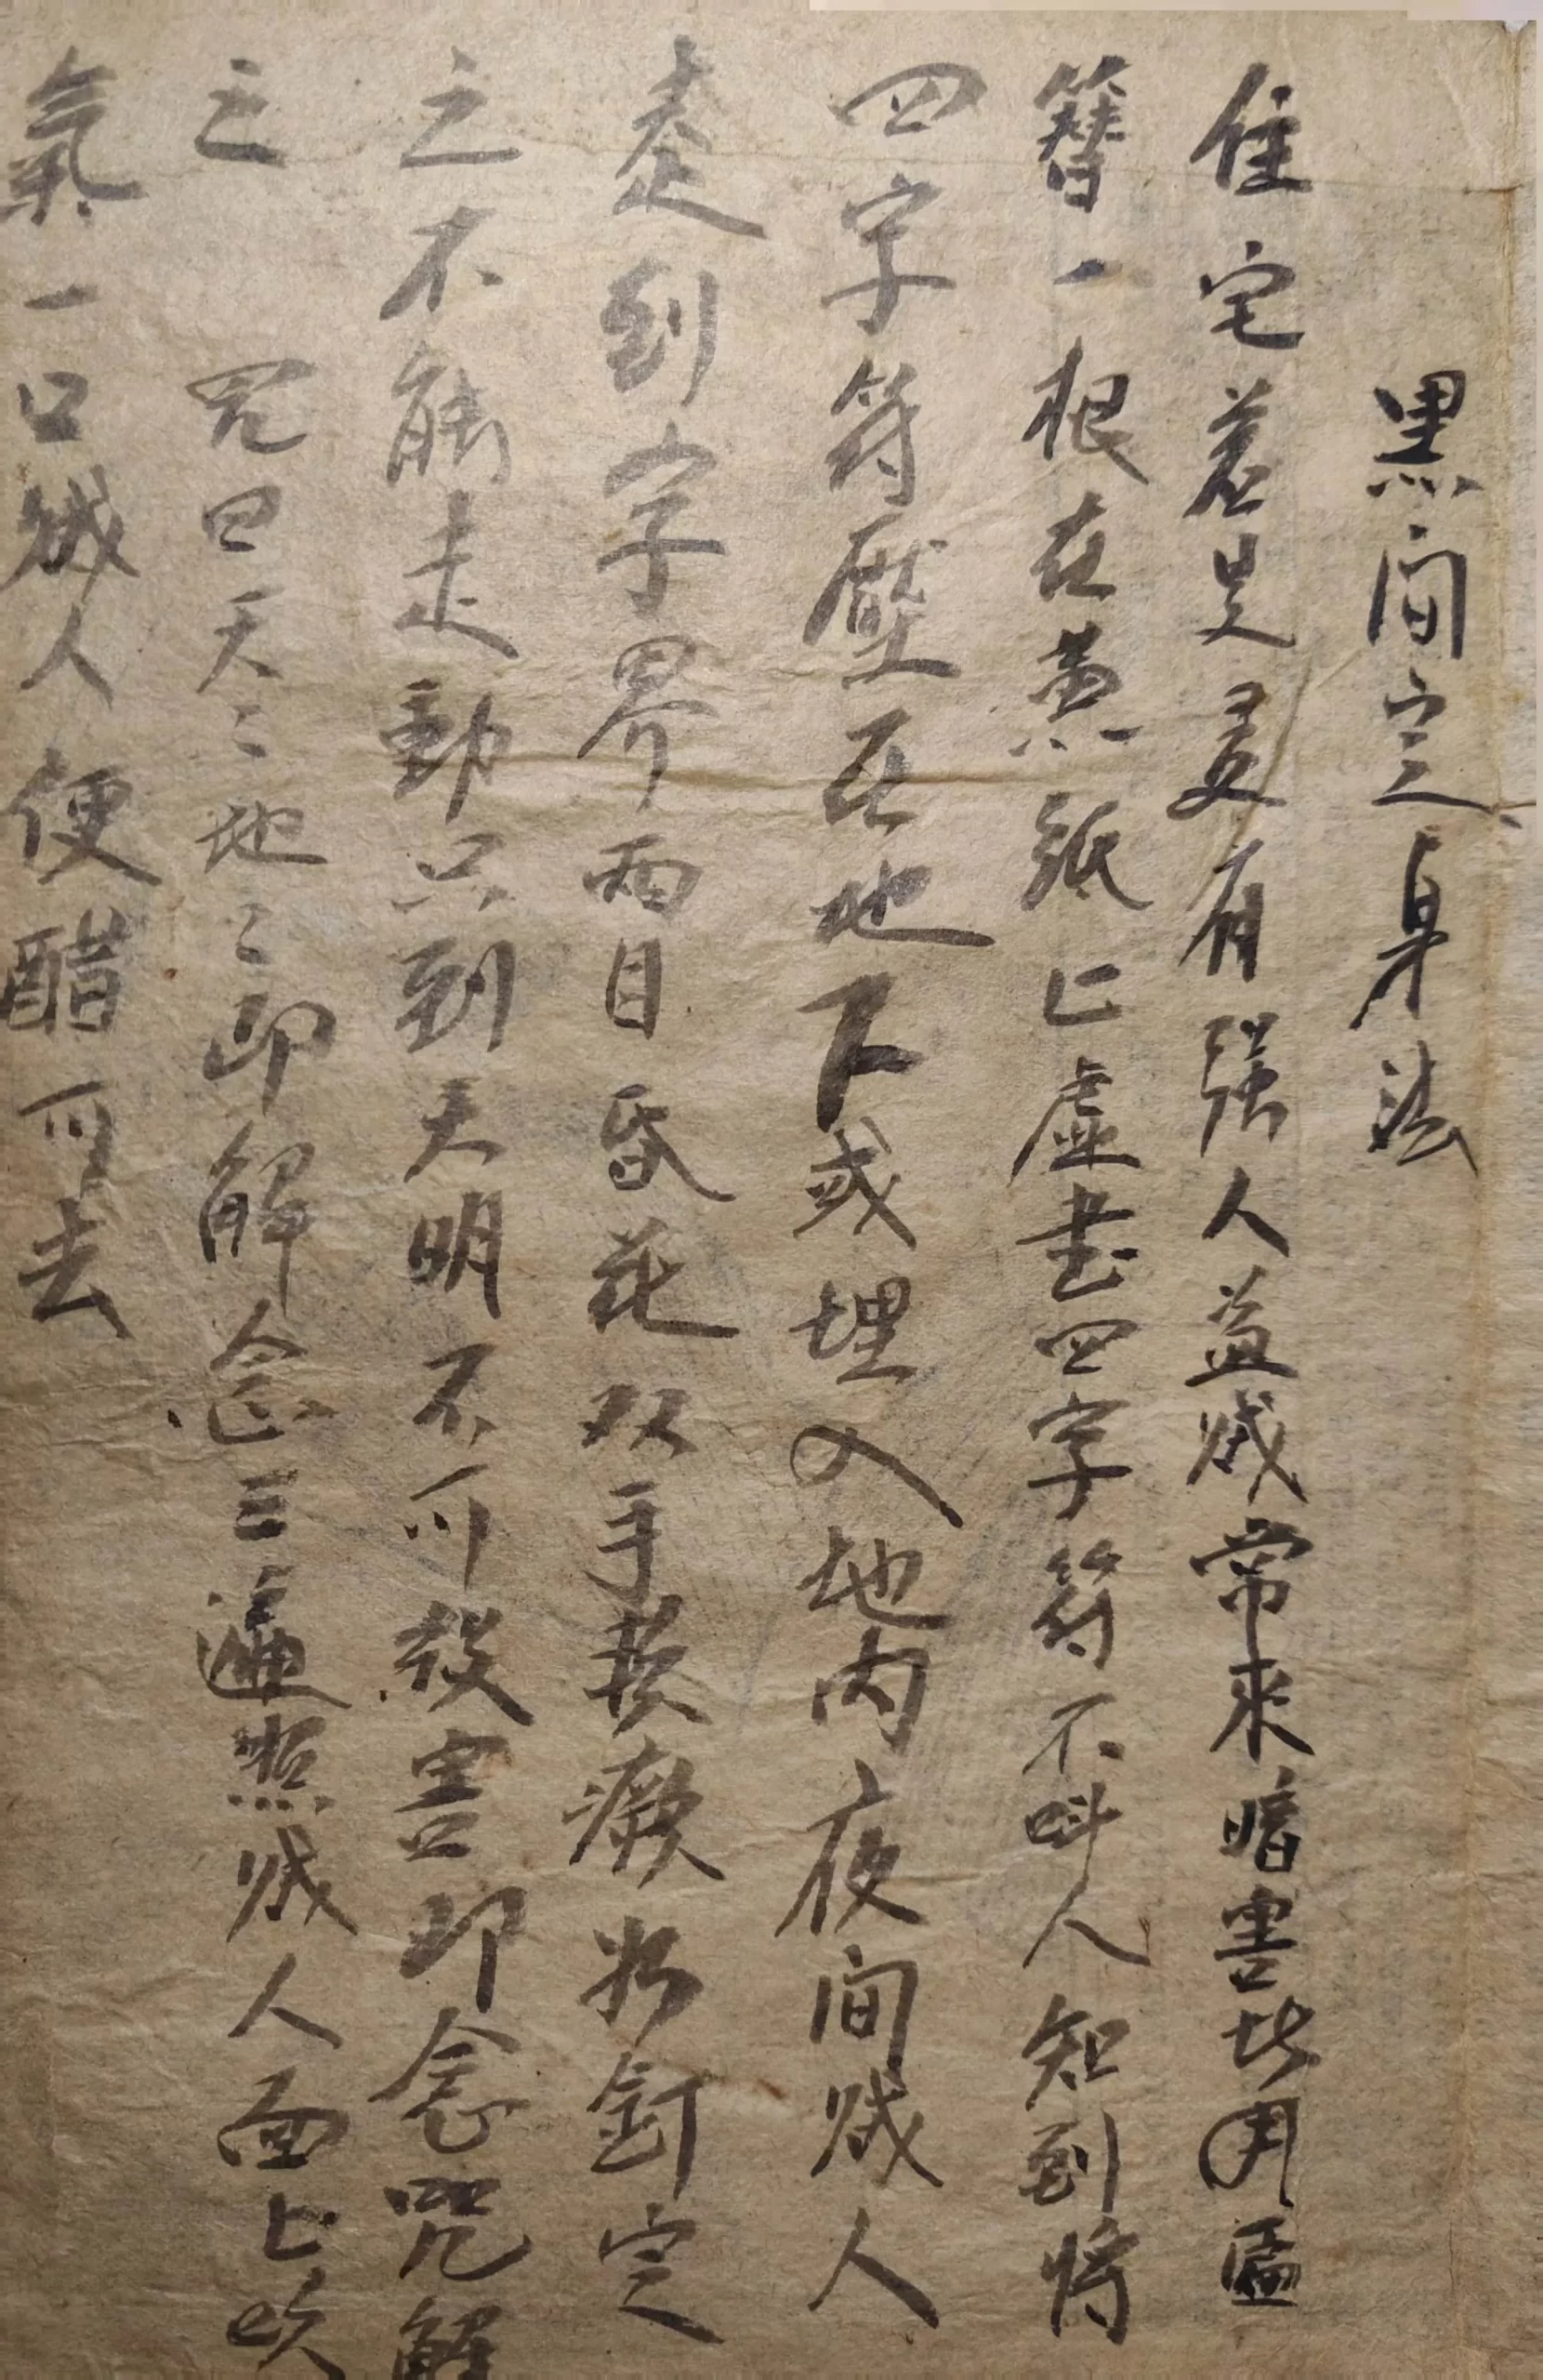 黑间定身法
住宅若是夜有强人盗贼常来暗害此用匾
簪一根在黄纸上虚書四字符不叫人知到将
四字符壓在地下或埋入地内夜间贼人
走到字界两目昏花双手 釘定
之不能走動只到天明不可殺害即念咒解
之 咒曰天二地二即解念三遍照贼人面上吹
氣一口贼人便醋可去